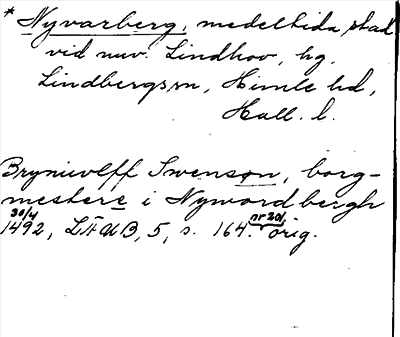 * Nyvarberg, medeltida stad
vid nuv. Lindhov, hg.
Lindbergs sn, Himle hd,
Hall. l.
Bryniuolff Swenson, borg-
mestere i Nywardbergh
30/4 1492, LÄUB, 5, s. 164. nr 201, orig.